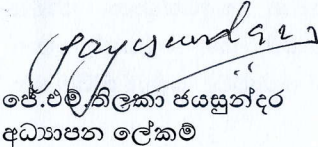 ජේ.එම්.තිලකා ජයසුන්දර
අධ්‍යාපන ලේකම්